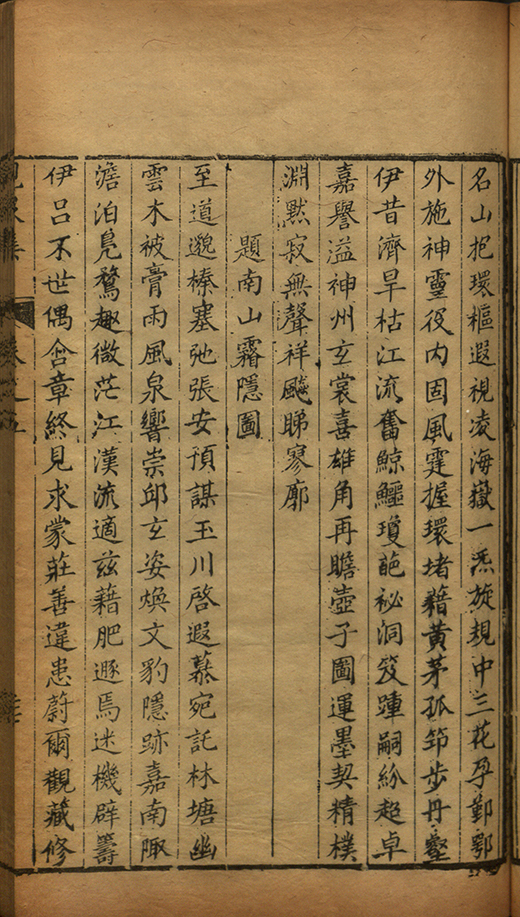 名山挹環樞遐視凌海嶽一炁旋規中三花孕鄞鄂
外施神靈役内固風霆握環堵藉黄茅孤筇步丹壑
伊昔濟旱枯江流奮鯨鱷瓊葩祕洞笈踵嗣紛超卓
嘉譽溢神州玄裳喜雄角再瞻壺子圖運墨契精樸
淵默寂無聲祥飈睇寥廓
題南山霧隱圖
至道邈榛塞弛張安預謀玉川啓遐慕宛託林塘幽
雲木被膏雨風泉響崇邱玄姿煥文豹隱跡嘉南陬
澹泊鳧鶩趣微茫江漢流適兹藉肥遯焉迷機辟籌
伊吕不世偶含章終見求蒙莊善違患蔚爾觀藏修